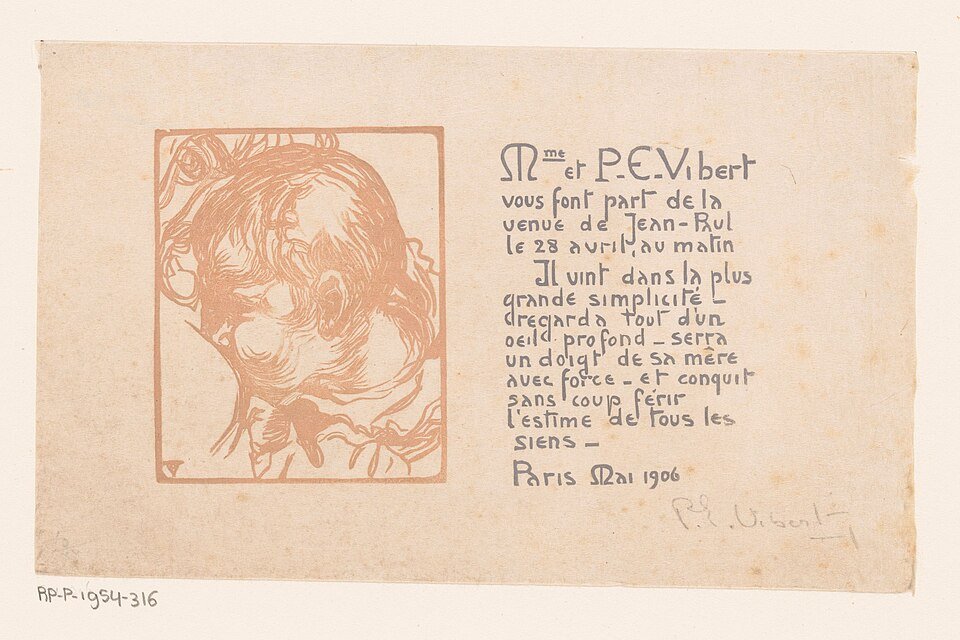 Mme et P.E.Vibert
vous font part de la
venue de Jean-Paul
le 28 avril, au matin
Il vint dans la plus
grande simplicité –
regarda tout d'un
oeil profond – serra
un doigt de sa mère
avec force – et conquit
sans coup férir
l'estime de tous les
siens –
Paris Mai 1906
P.E. Vibert
RP-P-1954-316